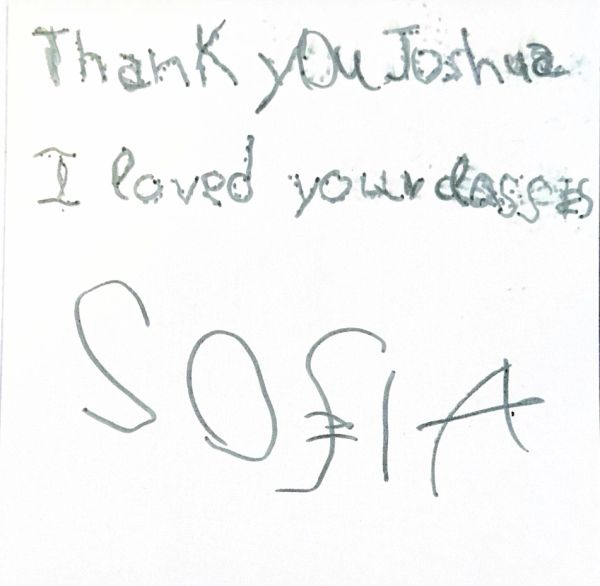 Thank you Joshua
I loved your classes
SOFIA